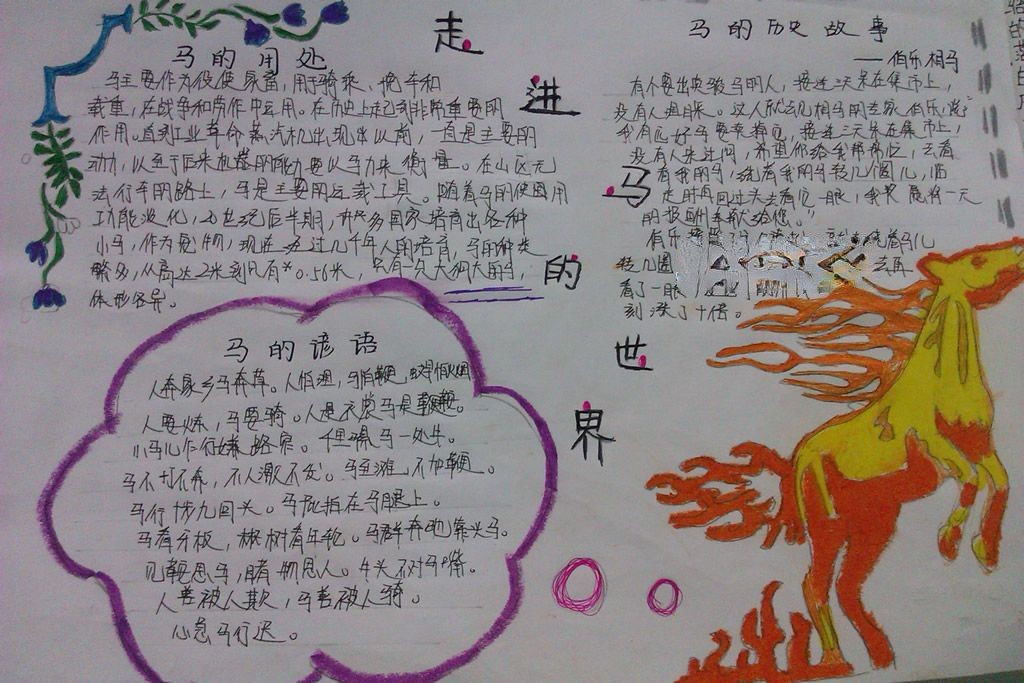 走进马的世界
马的用处
马主要作为役使家畜，用于骑乘、挽车和
载重，在战争和劳作中运用。在历史上起到非常重要的
作用。直到工业革命蒸汽机出现出以前，一直是主要的
动力，以至于后来机器的能力要以马力来衡量。在山区无
法行车的路上，马是主要的运载工具。随着马的使用用
功能淡化，20世纪后半期，
许多国家培育出各种
小马，作为宠物，现在
经过几千年人的培育，马的种类
繁多，从高达2米到只有
0.56米，只有一只大狗大的马，
体形各异。
马的谚语
人奔家乡马奔草。人怕
，马怕鞭，
怕火烟
人要炼，马要骑。人是衣裳马是鞍。
小马儿乍行嫌路窄。
马一处牛。
马不打不奔，不人激不发。
不加鞭。
马行十步九回头。马屁拍在马腿上。
马有
，树有年轮。马群奔驰靠头马。
见鞍思马，睹物思人。牛头不对马嘴。
人善被人欺，马善被人骑。
心急马行迟。
马的历史故事
——伯乐相马
有个要出卖骏马的人，接连三天来在集市上，
没有人过问来。这人就去见相马的专家伯乐，说"
我有匹好马要卖掉它，接连三天来在集市上，
没有人来过问，希望你给我帮帮忙，去看
看我的马，绕着我的马转几个圈儿，临
走时再回过头去看它一眼，我
愿将一天
的报酬奉献给您。"
伯乐
绕着马儿
转几圈
去再
看了一眼
刻涨了十倍。